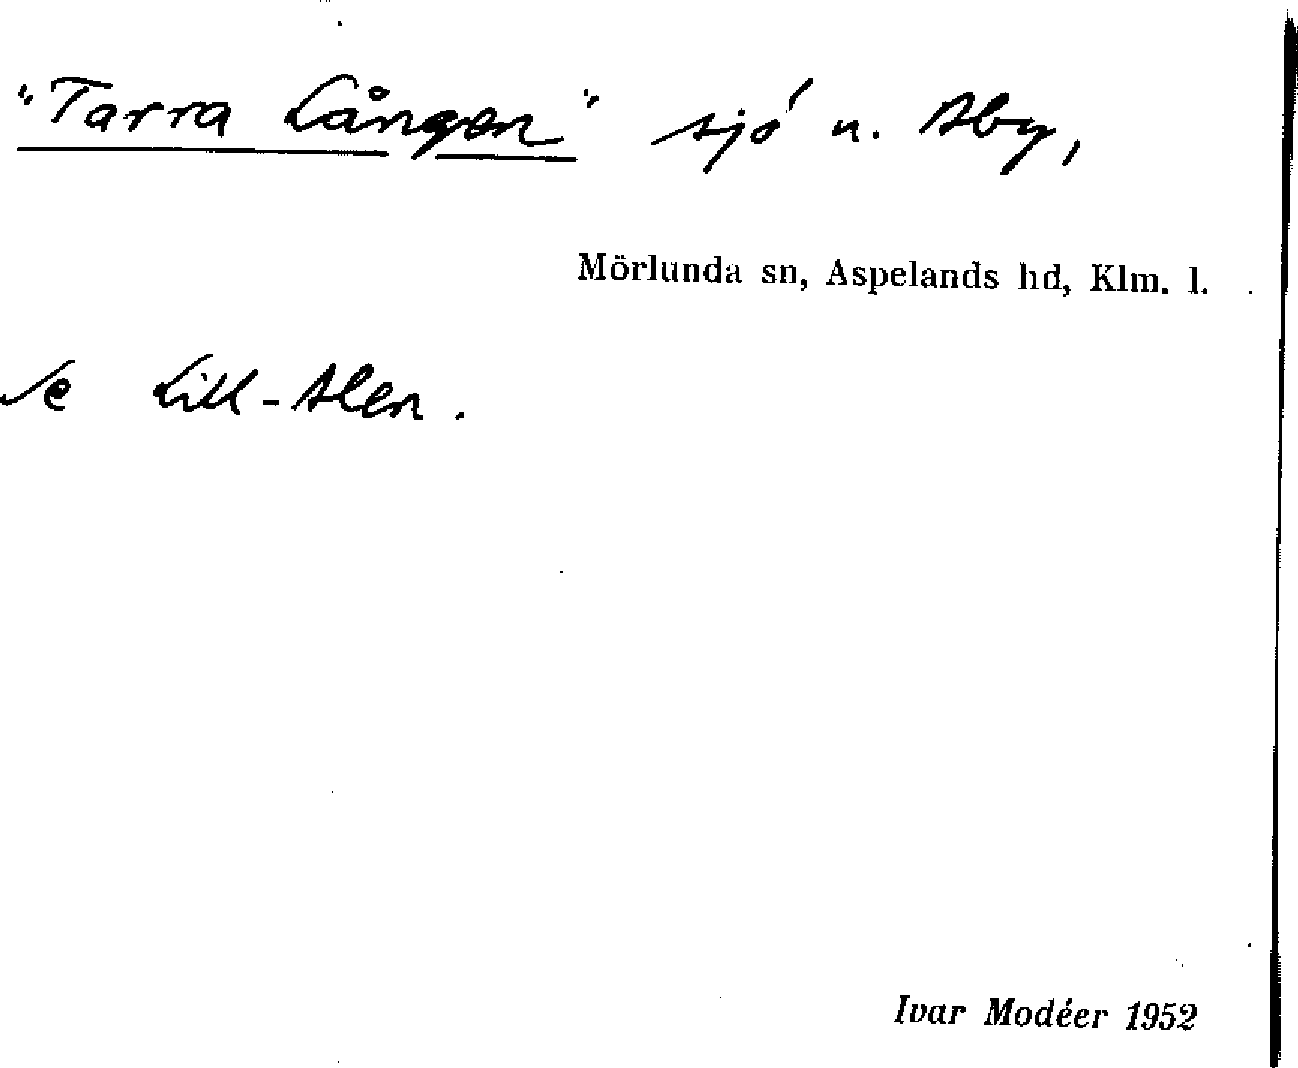 "Tarra Lången" sjö n. Åby,
Mörlunda sn, Aspelands hd, Klm. l.
Se Lill-Alen.
Ivar Modéer 1952